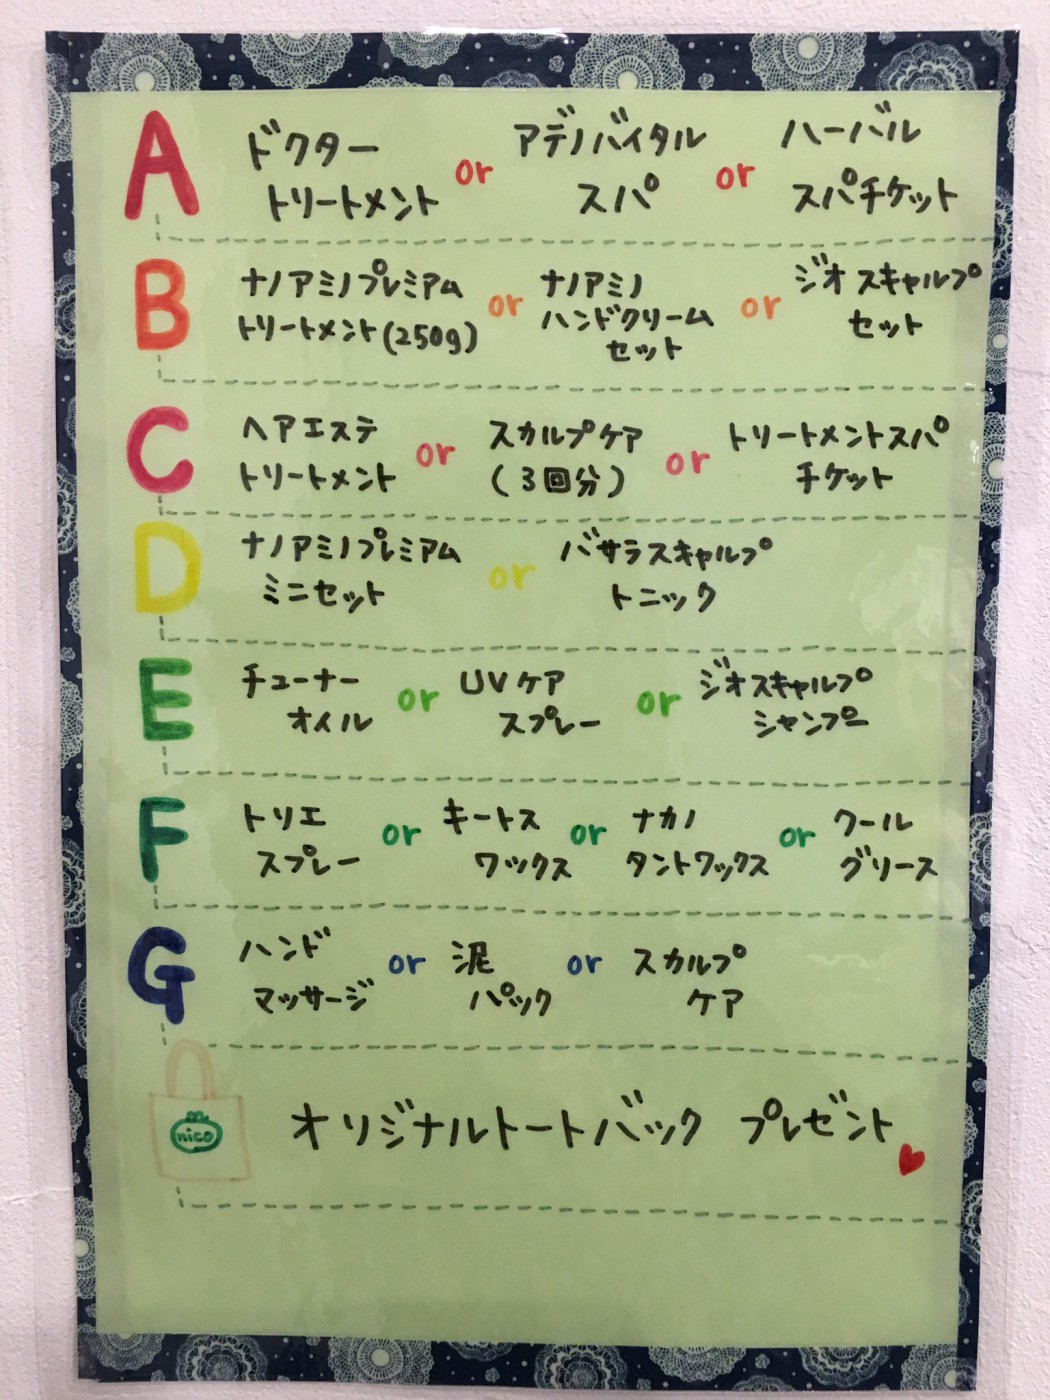 A
ドクター or アデノバイタル or ハーバル
トリートメント スパ スパチケット
B
ナノアミノプレミアム or ナノアミノ or ジオスキャルプ
トリートメント(250g) ハンドクリーム セット
セット
C
ヘアエステ or スカルプケア or トリートメントスパ
トリートメント (3回分) チケット
D
ナノアミノプレミアム or バサラスキャルプ
ミニセット トニック
E
チューナー or UVケア or ジオスキャルプ
オイル スプレー シャンプー
F
トリエ or キートス or ナカノ or クール
スプレー ワックス タントワックス グリース
G
ハンド or 泥 or スカルプ
マッサージ パック ケア
nico
オリジナルトートバック プレゼント